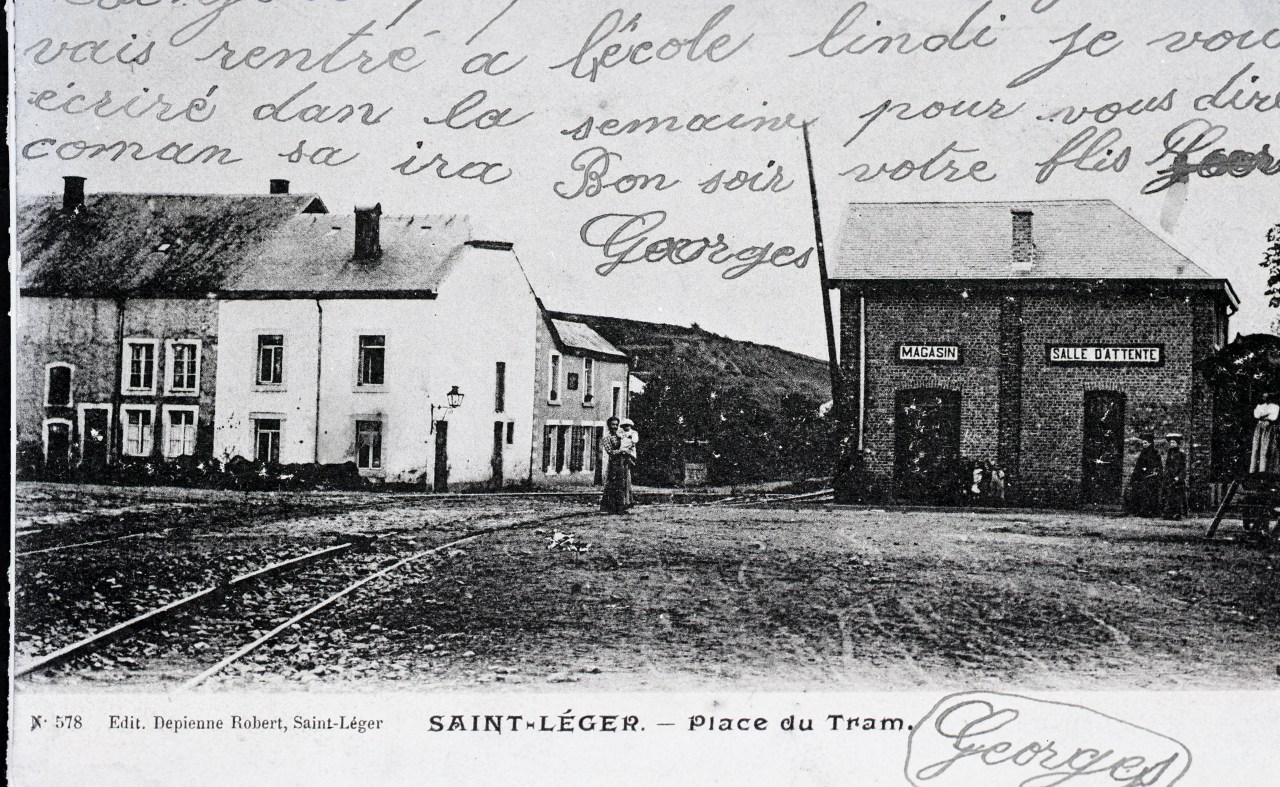 vais rentré a l'école lindi je vou
écriré dan la semaine pour vous dir
coman sa ira Bon soir votre flis
Georges
MAGASIN
SALLE D'ATTENTE
N. 578 Edit. Depienne Robert, Saint-Léger SAINT-LÉGER. — Place du Tram.
Georges